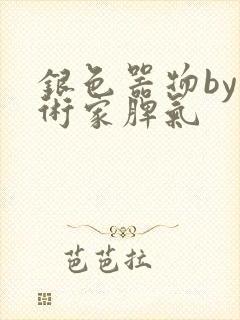 銀色器物by
術家脾氣
芭芭拉